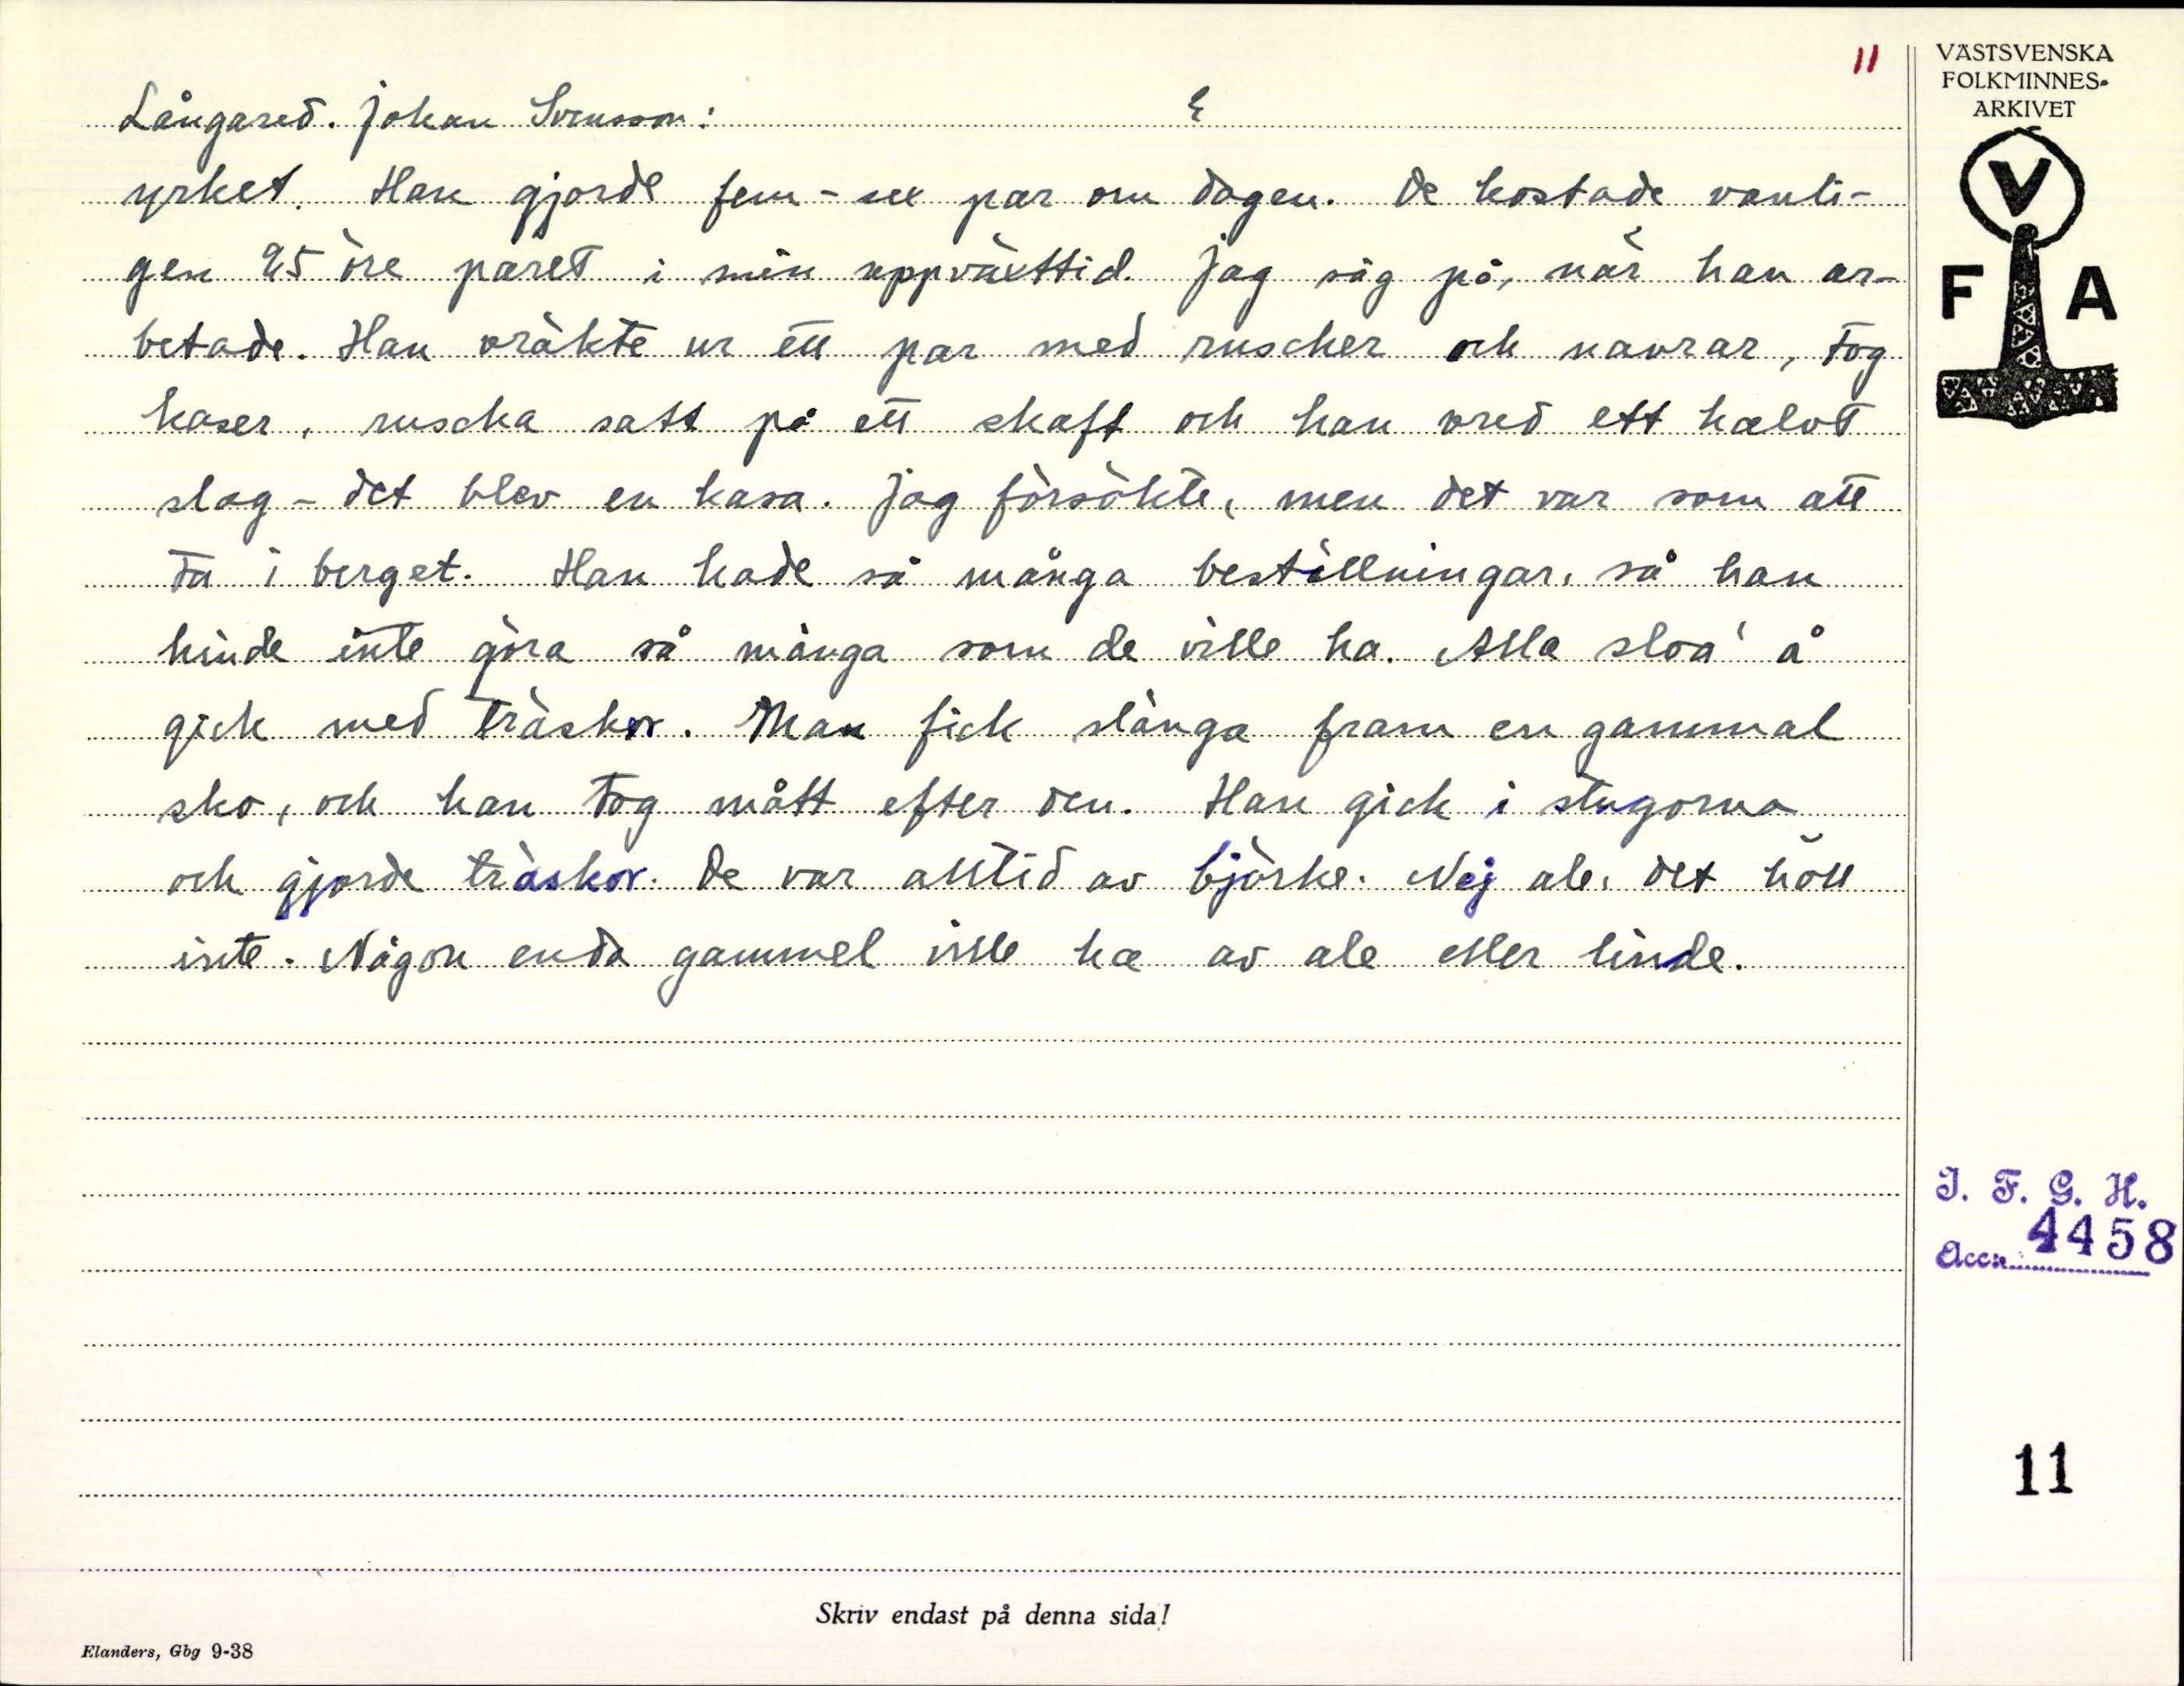 11
Långared. Johan Svensson: E
yrket. Han gjorde fem-sex par om dagen. De kostade vanli-
gen 25 öre paret i min uppväxttid. Jag såg på, när han ar-
betade. Han vräkte ur ett par med ruscher och navrar, tog
kaser, ruscha satt på ett skaft och han vred ett halvt
slag - det blev en kasa. Jag försökte, men det var som att
ta i berget. Han hade så många beställningar, så han
hinde inte göra så många som de ville ha. Alla sloa' å
gick med träskor. Man fick slänga fram en gammal
sko, och han tog mått efter den. Han gick i stugorna
och gjorde träskor. De var alltid av björke. Nej ale, det höll
inte. Någon enda gammel ville ha av ale eller linde.
VÄSTSVENSKA
FOLKMINNES-
ARKIVET
V
F A
I. F. G. H.
Accn 4458
11
Skriv endast på denna sida!
Elanders, Gbg 9-38